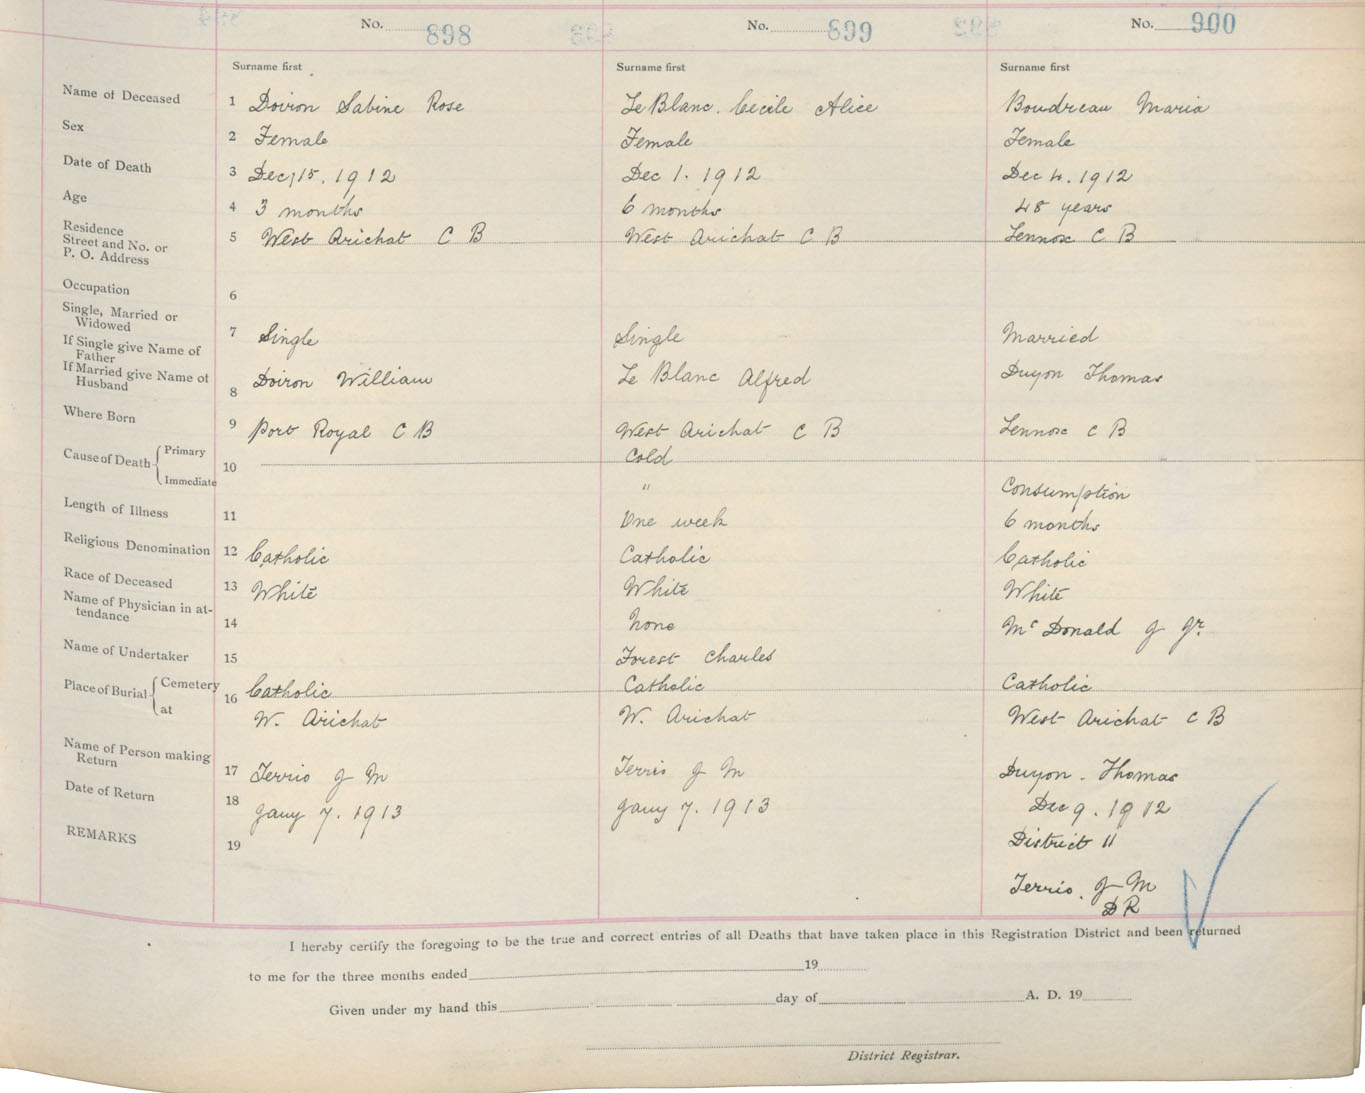 No. 898 No. 899 No. 900
Surname first Surname first Surname first
Name of Deceased 1 Doiron Sabine Rose Le Blanc. Cecile Alice Boudreau Maria
Sex 2 Female Female Female
Date of Death 3 Dec, 15. 1912 Dec 1. 1912 Dec 4. 1912
Age 4 3 months 6 months 48 years
Residence
Street and No. or 5 West Arichat C B West Arichat C B Lennox C B
P. O. Address
Occupation 6
Single, Married or
Widowed 7 Single Single Married
If Single give Name of
Father
If Married give Name of
Husband 8 Doiron William Le Blanc Alfred Duyon Thomas
Where Born 9 Port Royal C B West Arichat C B Lennox C B
Cause of Death Primary 10 Cold
Immediate " Consumption
Length of Illness 11 One week 6 months
Religious Denomination 12 Catholic Catholic Catholic
Race of Deceased 13 White White White
Name of Physician in at-
tendance 14 None Mc Donald J Jr.
Name of Undertaker 15 Forest Charles
Place of Burial Cemetery 16 Catholic Catholic Catholic
at W. Arichat W. Arichat West Arichat C B
Name of Person making
Return 17 Terrio J M Terrio J M Duyon. Thomas
Date of Return 18 Jany 7. 1913 Jany 7. 1913 Dec 9. 1912
REMARKS 19 District 11
Terrio. J M
D R
I hereby certify the foregoing to be the true and correct entries of all Deaths that have taken place in this Registration District and been returned
to me for the three months ended 19
Given under my hand this day of A. D. 19
District Registrar.